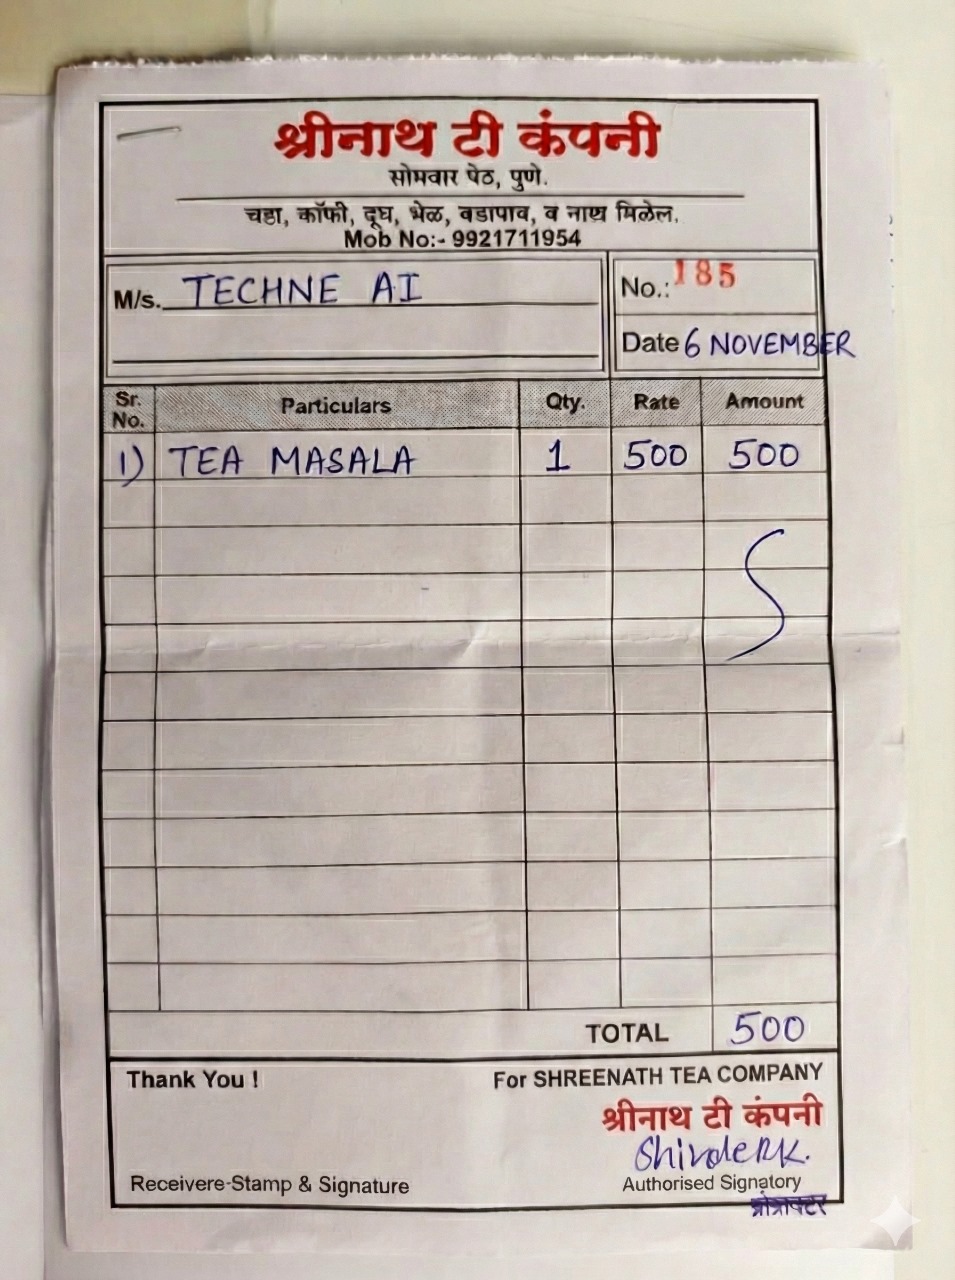 श्रीनाथ टी कंपनी
सोमवार पेठ, पुणे.
चहा, कॉफी, दूध, भेळ, वडापाव, व नाश्ता मिळेल.
Mob No:- 9921711954
M/s. TECHNE AI
No.: 185
Date 6 NOVEMBER
Sr. No. Particulars Qty. Rate Amount
1) TEA MASALA 1 500 500
TOTAL 500
Thank You ! For SHREENATH TEA COMPANY
श्रीनाथ टी कंपनी
Receivere-Stamp & Signature Authorised Signatory